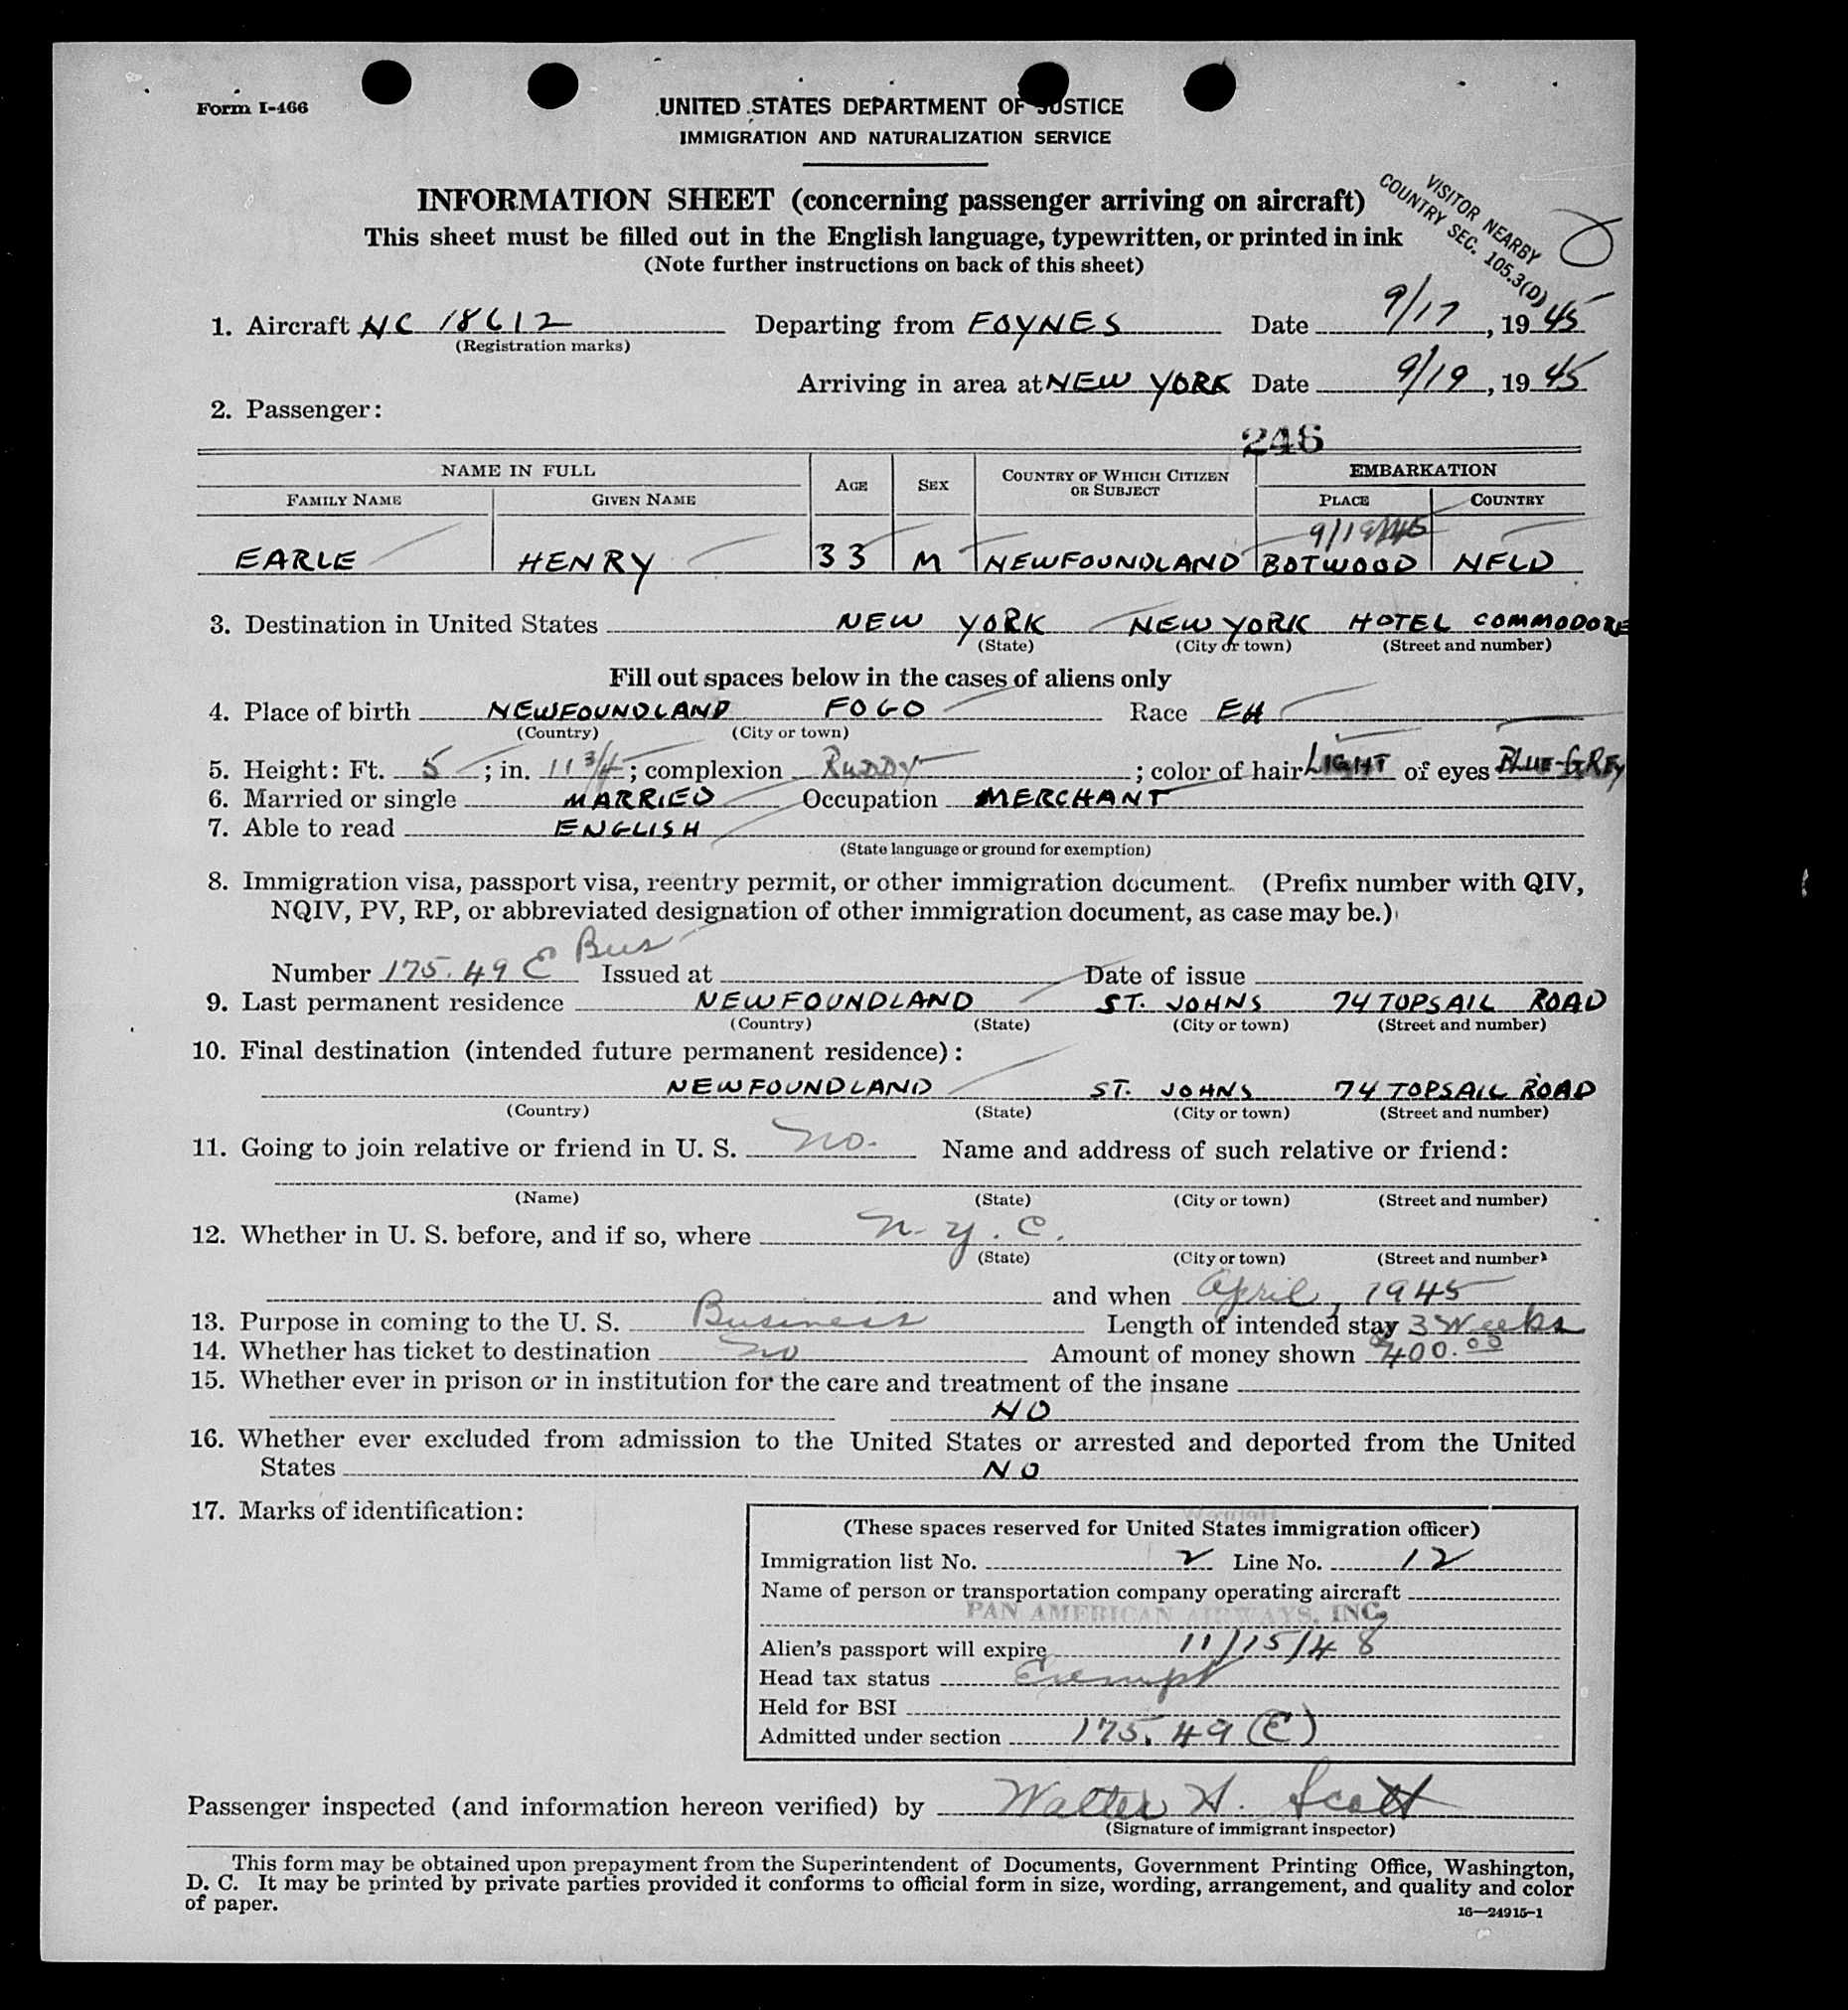 Form I-466
UNITED STATES DEPARTMENT OF JUSTICE
IMMIGRATION AND NATURALIZATION SERVICE
INFORMATION SHEET (concerning passenger arriving on aircraft)
VISITOR NEARBY
COUNTRY SEC. 105.3(D)
This sheet must be filled out in the English language, typewritten, or printed in ink
(Note further instructions on back of this sheet)
1. Aircraft NC 18612 Departing from FOYNES Date 9/17, 1945
(Registration marks)
Arriving in area at NEW YORK Date 9/19, 1945
2. Passenger:
246
NAME IN FULL AGE SEX COUNTRY OF WHICH CITIZEN OR SUBJECT EMBARKATION
FAMILY NAME GIVEN NAME PLACE COUNTRY
9/19/45
EARLE HENRY 33 M NEWFOUNDLAND BOTWOOD NFLD
3. Destination in United States NEW YORK NEW YORK HOTEL COMMODORE
(State) (City or town) (Street and number)
Fill out spaces below in the cases of aliens only
4. Place of birth NEWFOUNDLAND FOGO Race EH
(Country) (City or town)
5. Height: Ft. 5; in. 11 3/4; complexion RUDDY; color of hair LIGHT of eyes BLUE-GREY
6. Married or single MARRIED Occupation MERCHANT
7. Able to read ENGLISH
(State language or ground for exemption)
8. Immigration visa, passport visa, reentry permit, or other immigration document. (Prefix number with QIV,
NQIV, PV, RP, or abbreviated designation of other immigration document, as case may be.)
Number 175.49 E Bus Issued at Date of issue
9. Last permanent residence NEWFOUNDLAND ST. JOHNS 74 TOPSAIL ROAD
(Country) (State) (City or town) (Street and number)
10. Final destination (intended future permanent residence):
NEWFOUNDLAND ST. JOHNS 74 TOPSAIL ROAD
(Country) (State) (City or town) (Street and number)
11. Going to join relative or friend in U. S. No. Name and address of such relative or friend:
(Name) (State) (City or town) (Street and number)
12. Whether in U. S. before, and if so, where N.Y.C.
(State) (City or town) (Street and number)
and when April, 1945
13. Purpose in coming to the U. S. Business Length of intended stay 3 Weeks
14. Whether has ticket to destination No Amount of money shown $400.00
15. Whether ever in prison or in institution for the care and treatment of the insane
NO
16. Whether ever excluded from admission to the United States or arrested and deported from the United
States NO
17. Marks of identification:
(These spaces reserved for United States immigration officer)
Immigration list No. 2 Line No. 12
Name of person or transportation company operating aircraft
PAN AMERICAN AIRWAYS, INC.
Alien's passport will expire 11/15/48
Head tax status Exempt
Held for BSI
Admitted under section 175.49 (E)
Passenger inspected (and information hereon verified) by Walter H. Scott
(Signature of immigrant inspector)
This form may be obtained upon prepayment from the Superintendent of Documents, Government Printing Office, Washington,
D. C. It may be printed by private parties provided it conforms to official form in size, wording, arrangement, and quality and color
of paper.
16—24915-1